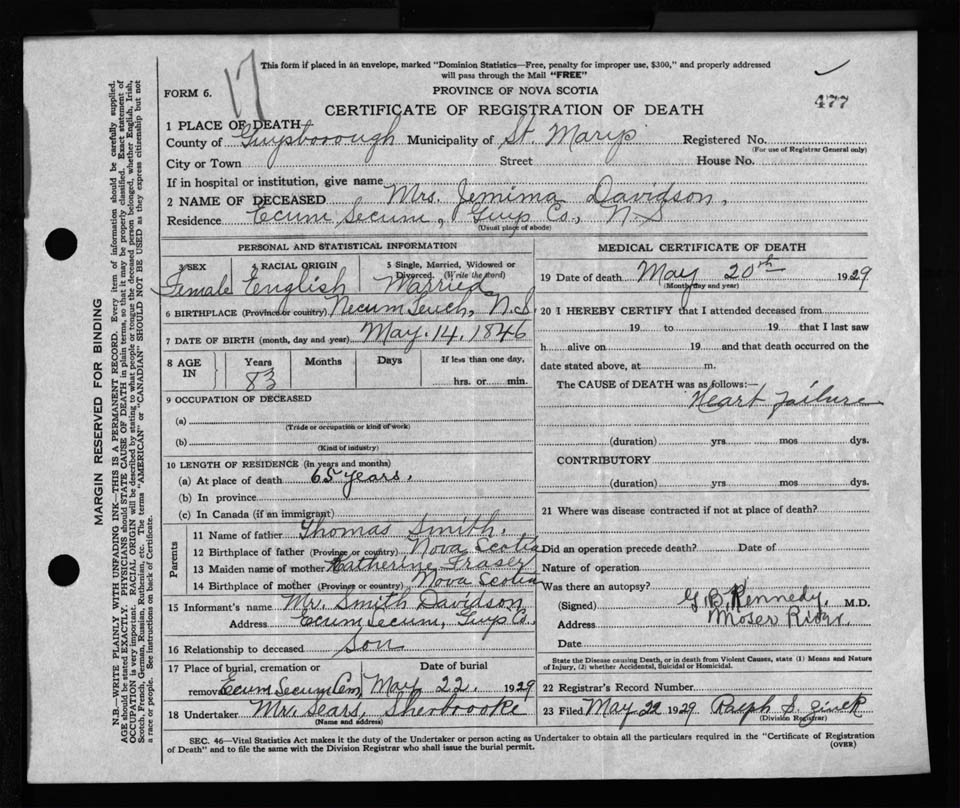 17
This form if placed in an envelope, marked "Dominion Statistics—Free, penalty for improper use, $300," and properly addressed
will pass through the Mail "FREE"
FORM 6.
PROVINCE OF NOVA SCOTIA
477
CERTIFICATE OF REGISTRATION OF DEATH
1 PLACE OF DEATH
County of Guysborough Municipality of St. Marys Registered No.
(For use of Registrar General only)
City or Town Street House No.
If in hospital or institution, give name
2 NAME OF DECEASED Mrs. Jemima Davidson,
Residence Ecum Secum, Guys Co., N.S
(Usual place of abode)
PERSONAL AND STATISTICAL INFORMATION
3 SEX 4 RACIAL ORIGIN 5 Single, Married, Widowed or
Divorced. (Write the word)
Female English Married
6 BIRTHPLACE (Province or country) Necum Teuch, N.S.
7 DATE OF BIRTH (month, day and year) May. 14, 1846
8 AGE IN Years Months Days If less than one day,
83 hrs. or min.
9 OCCUPATION OF DECEASED
(a)
(Trade or occupation or kind of work)
(b)
(Kind of industry)
10 LENGTH OF RESIDENCE (in years and months)
(a) At place of death 65 years.
(b) In province
(c) In Canada (if an immigrant)
Parents
11 Name of father Thomas Smith.
12 Birthplace of father (Province or country) Nova Scotia
13 Maiden name of mother Katherine Fraser
14 Birthplace of mother (Province or country) Nova Scotia
15 Informant's name Mr. Smith Davidson
Address Ecum Secum, Guys Co.
16 Relationship to deceased Son
17 Place of burial, cremation or Date of burial
removal Ecum Secum Cem, May 22. 1929
18 Undertaker Mr. Sears, Sherbrooke
(Name and address)
MEDICAL CERTIFICATE OF DEATH
19 Date of death May 20th 1929
(Month, day and year)
20 I HEREBY CERTIFY that I attended deceased from
19 to 19 that I last saw
h alive on 19 and that death occurred on the
date stated above, at m.
The CAUSE of DEATH was as follows:
Heart failure
(duration) yrs mos dys.
CONTRIBUTORY
(duration) yrs mos dys.
21 Where was disease contracted if not at place of death?
Did an operation precede death? Date of
Nature of operation
Was there an autopsy?
(Signed) G. B. Kennedy, M.D.
Address Moser River.
Date
State the Disease causing Death, or in death from Violent Causes, state (1) Means and Nature
of Injury, (2) whether Accidental, Suicidal or Homicidal.
22 Registrar's Record Number
23 Filed May 22 1929 Ralph S.
(Division Registrar)
SEC. 46—Vital Statistics Act makes it the duty of the Undertaker or person acting as Undertaker to obtain all the particulars required in the "Certificate of Registration
of Death" and to file the same with the Division Registrar who shall issue the burial permit.
(OVER)
MARGIN RESERVED FOR BINDING
N.B.—WRITE PLAINLY WITH UNFADING INK—THIS IS A PERMANENT RECORD. Every item of information should be carefully supplied.
AGE should be stated EXACTLY. PHYSICIANS should STATE CAUSE OF DEATH in plain terms, so that it may be properly classified. Exact statement of
OCCUPATION is very important. RACIAL ORIGIN will be described by stating to what people or tongue the deceased person belonged, whether English, Irish,
Scotch, French, German, Russian, Ruthenian, etc. The terms "AMERICAN" or "CANADIAN" SHOULD NOT BE USED as they express citizenship but not
a race or people. See instructions on back of Certificate.